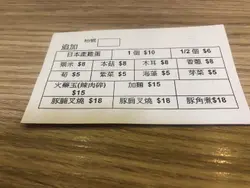 追加
日本產雞蛋 1 個 $10 1/2 個 $6
粟米 $8 本菇 $8 木耳 $8 香蔥 $8
筍 $5 紫菜 $5 海藻 $5 芽菜 $5
火藥玉(辣肉碎) $15 加麵 $15
豚腩叉燒 $18 豚肩叉燒 $18 豚角煮 $18